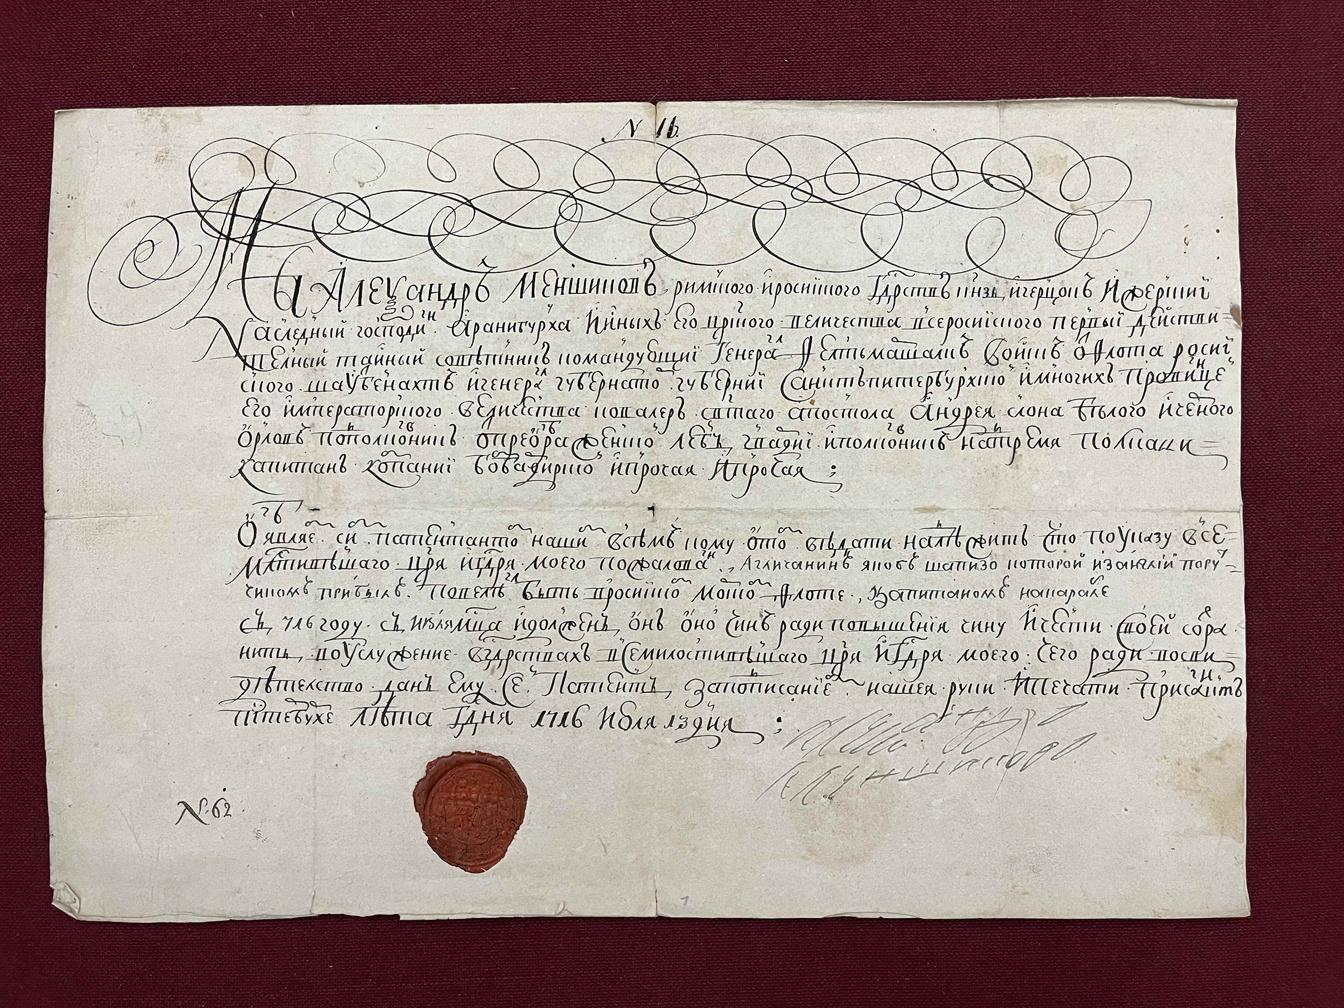 N 16
МЫ АЛЕѮАНДРЪ МЕНШИКОВЪ римского ироссиского Гдрствъ кнзь, игерцогъ Ижерский
Наследный господинъ Аранибурха Ииныхъ Его црского величества всеросиского первый дѣйстви=
телный тайный совѣтникъ командующий Генералъ Фелтьмаршалъ Войскъ ѿ Флота росиі=
ского шаутбенахтъ игенералъ губернаторъ губерниі Санктъпитербурхской имногихъ провинцей
Его императорского величества кавалеръ святаго апостола Андрея слона бѣлого ичерного
Орловъ полковникъ отъ преображенского Лебъ гвардиі иполковникъ надтремя полками
капитанъ компаниі бомбардирской ипрочая Ипрочая ;
Объявляемъ симъ патентомъ нашимъ всѣмъ кому отомъ вѣдати надлежитъ что поУказу ВСЕ=
Млтивѣйшаго цря Игдря моего пожалованъ, Агличанинъ якобъ шапизо которой изанглиі пору=
чикомъ прибылъ. Повелѣлъ быть вросискомъ моемъ Флоте, капитаномъ накарабле
съ 716 году съ июля мца идолженъ онъ оной чинъ ради повышенія чину Ичести своей сохра=
нить, воУслужение вгдрствахъ вСемилостивѣйшаго цря Игдря моего. Чего ради восви=
дѣтелство данъ Ему Сей Патентъ, Заподписаниемъ нашея руки Ипечати Присанктъ
питебурхе Лѣта Гдня 1716 Июля 13 дня ;
Александръ
Меншиковъ
N. 62